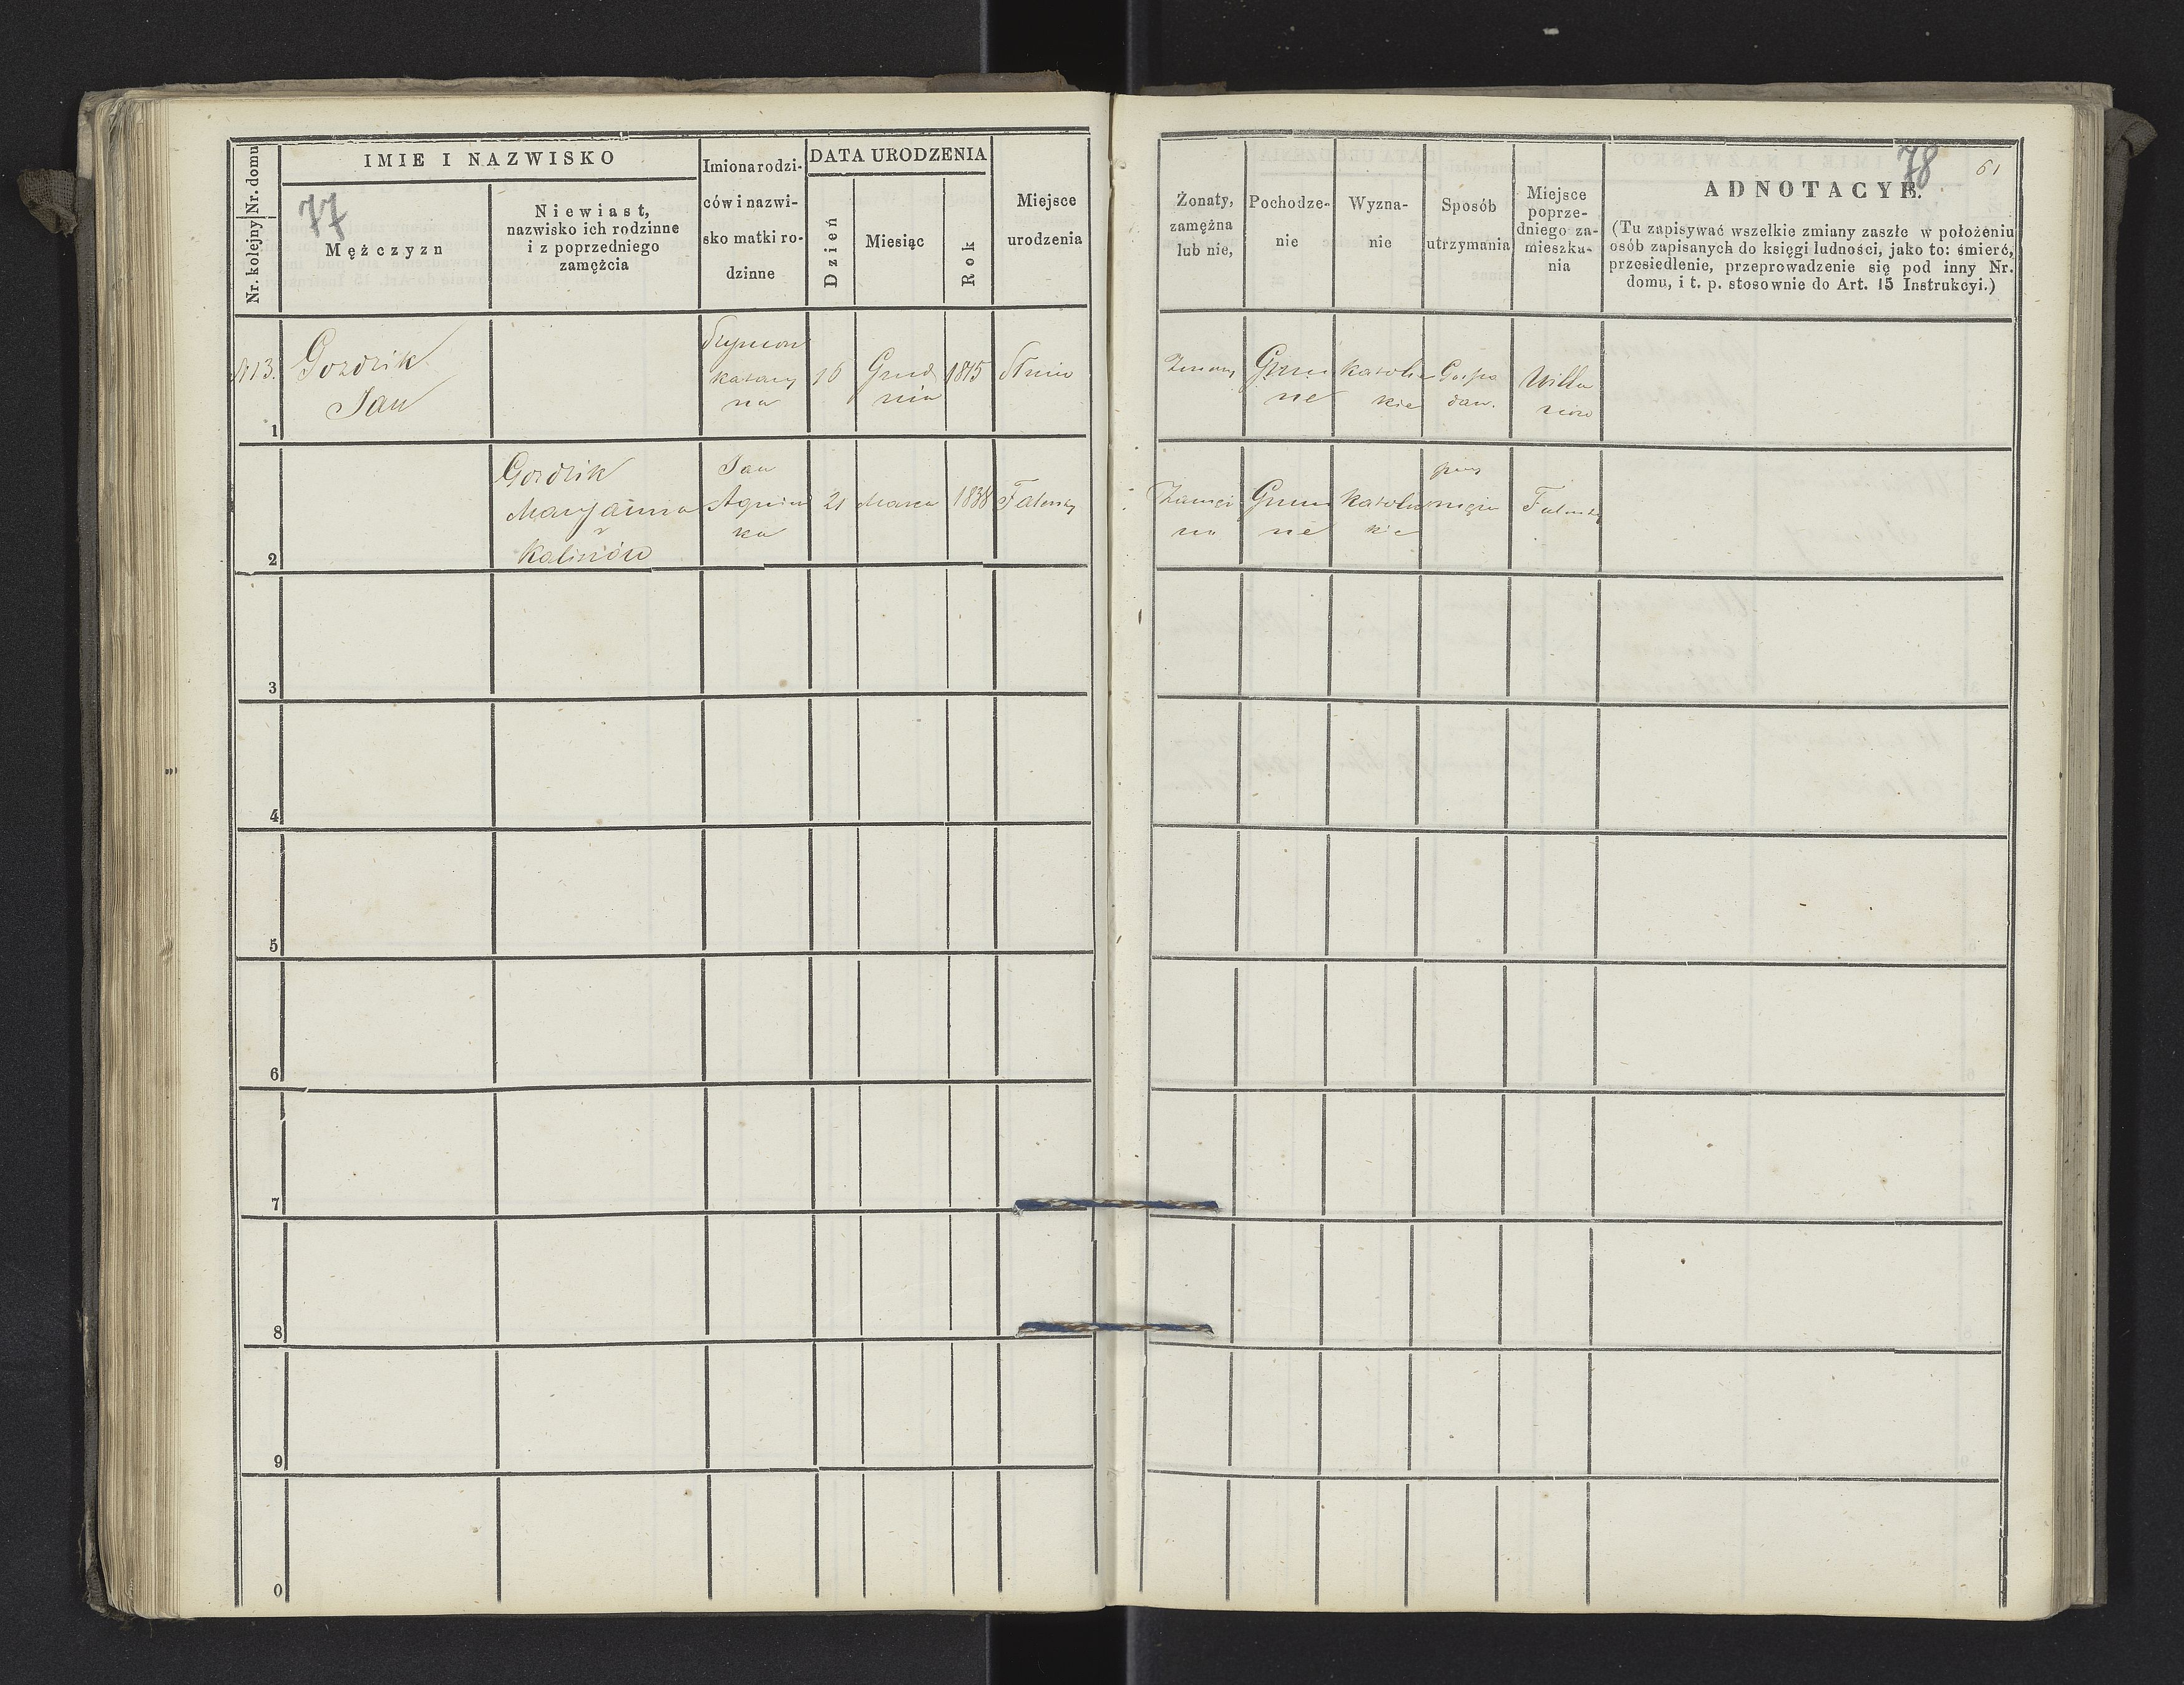 Nr. domu
Nr. kolejny
IMIE I NAZWISKO
77
Mężczyzn
Niewiast,
nazwisko ich rodzinne
i z poprzedniego
zamężcia
Imiona rodzi-
ców i nazwi-
sko matki ro-
dzinne
DATA URODZENIA
Dzień
Miesiąc
Rok
Miejsce
urodzenia
Żonaty,
zamężna
lub nie,
Pochodze-
nie
Wyzna-
nie
Sposób
utrzymania
Miejsce
poprze-
dniego za-
mieszka-
nia
78
61
ADNOTACYE.
(Tu zapisywać wszelkie zmiany zaszłe w położeniu
osób zapisanych do księgi ludności, jako to: śmierć,
przesiedlenie, przeprowadzenie się pod inny Nr.
domu, i t. p. stosownie do Art. 15 Instrukcyi.)
N13.
1
Gozdzik
Jan
Szymon
Katarzy
na
16
Grud
nia
Żonaty
Gmin
ne
Katolic
kie
Gospo
dar.
Willa
nów
2
Gozdzik
Maryanna
z
Kalisiów
Jan
Agniesz
ka
21
Marca
1838
Falenty
Zamęż
na
Gmin
ne
Katolic
kie
przy
mężu
Falenty
3
4
5
6
7
8
9
0